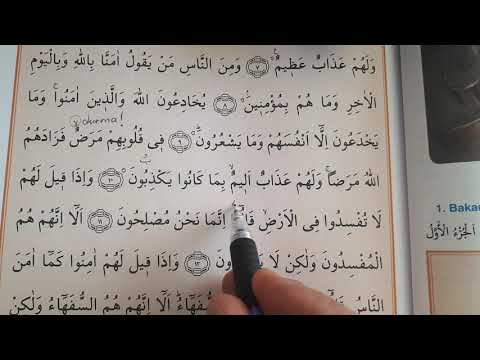 وَلَهُمْ عَذَابٌ عَظ۪يمٌ۟ ﴿٧﴾ وَمِنَ النَّاسِ مَنْ يَقُولُ اٰمَنَّا بِاللّٰهِ وَبِالْيَوْمِ
الْاٰخِرِ وَمَا هُمْ بِمُؤْمِن۪ينَۢ ﴿٨﴾ يُخَادِعُونَ اللّٰهَ وَالَّذ۪ينَ اٰمَنُواۚ وَمَا
okunma!
يَخْدَعُونَ اِلَّٓا اَنْفُسَهُمْ وَمَا يَشْعُرُونَۜ ﴿٩﴾ ف۪ي قُلُوبِهِمْ مَرَضٌۙ فَزَادَهُمُ
اللّٰهُ مَرَضًاۚ وَلَهُمْ عَذَابٌ اَل۪يمٌۙ بِمَا كَانُوا يَكْذِبُونَ ﴿١٠﴾ وَاِذَا ق۪يلَ لَهُمْ
لَا تُفْسِدُوا فِي الْاَرْضِۙ اِنَّمَا نَحْنُ مُصْلِحُونَ ﴿١١﴾ اَلَٓا اِنَّهُمْ هُمُ
الْمُفْسِدُونَ وَلٰكِنْ لَا ﴿١٢﴾ وَاِذَا ق۪يلَ لَهُمْ اٰمِنُوا كَمَٓا اٰمَنَ
النَّاسُ السُّفَهَٓاءُۜ اَلَٓا اِنَّهُمْ هُمُ السُّفَهَٓاءُ وَلٰكِنْ
1. Baka
اَلْجُزْءُ الْاَوَّلُ